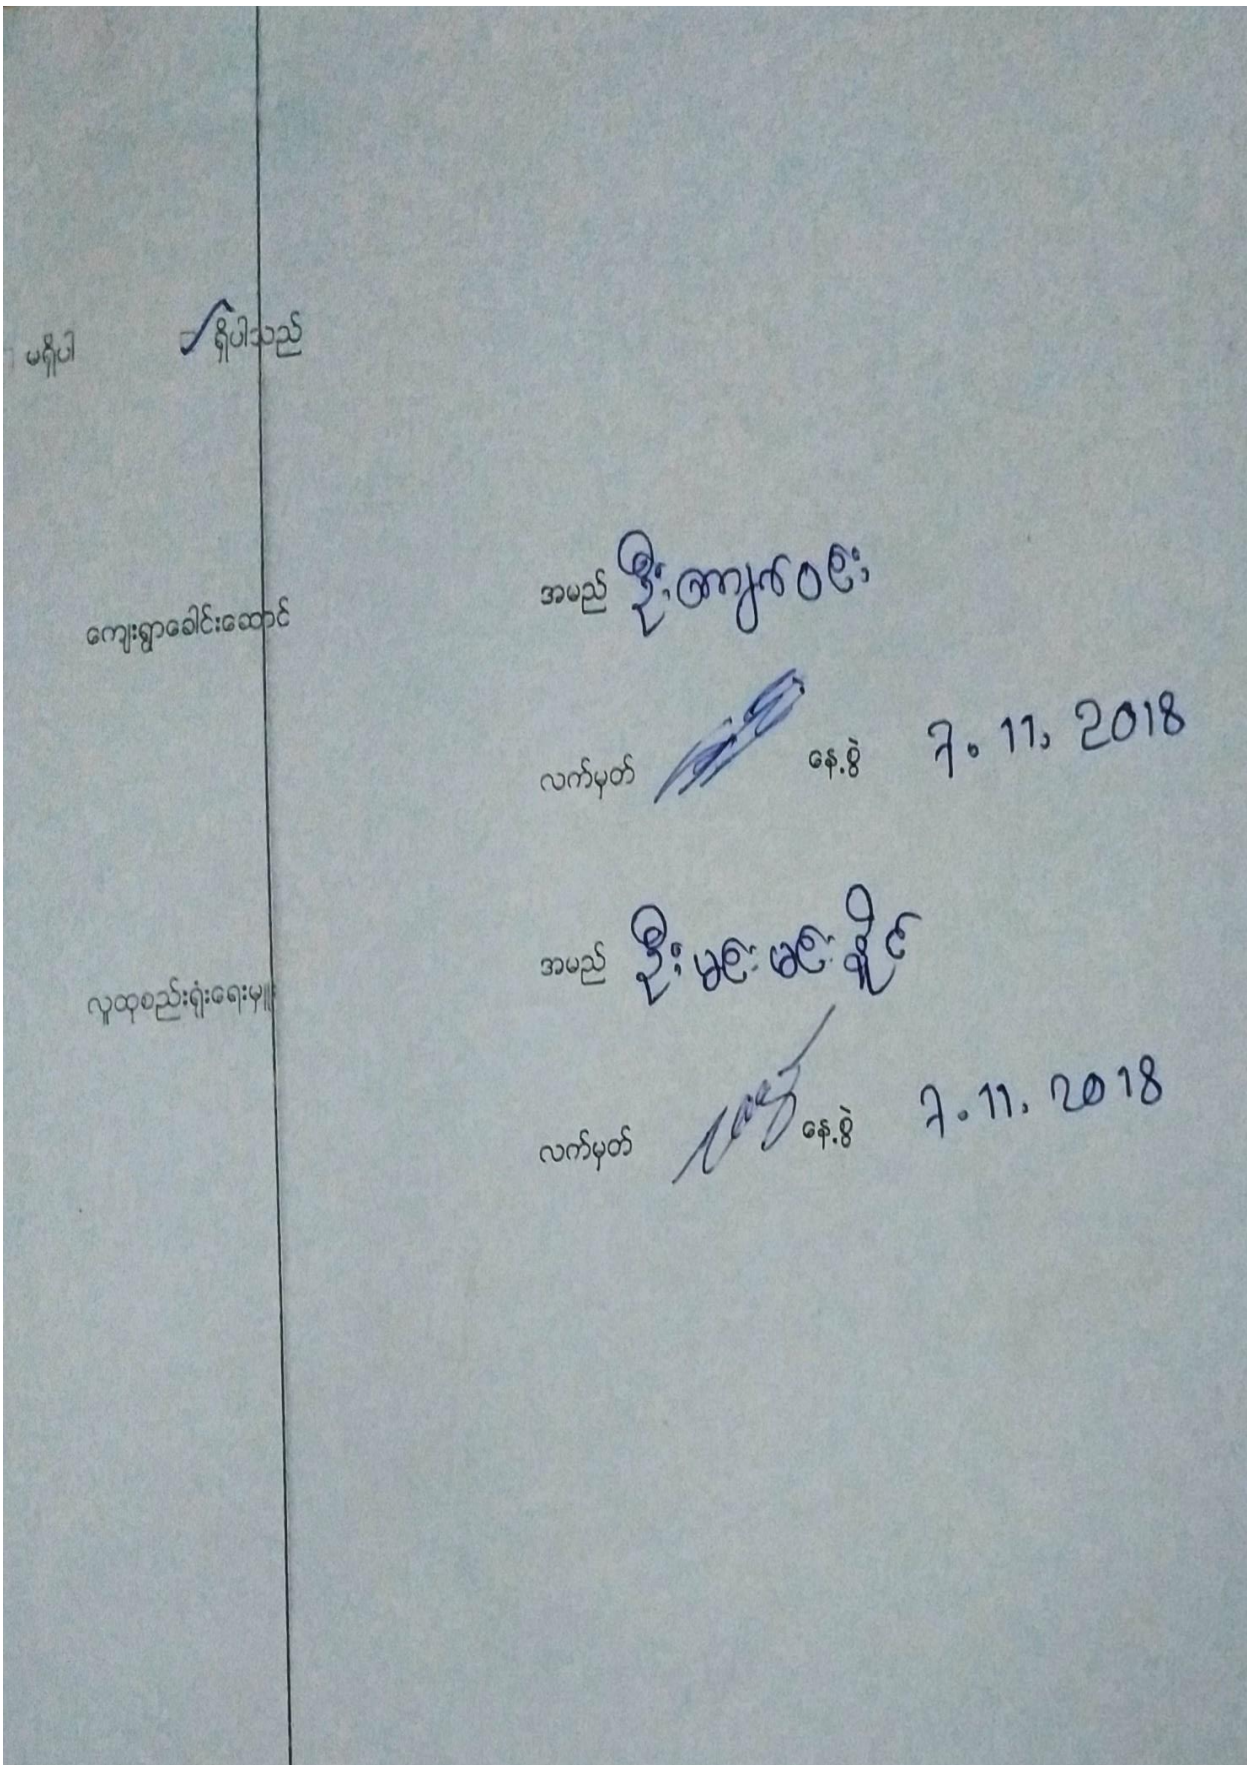 မရှိပါ ရှိပါသည်
ကျေးရွာခေါင်းဆောင် အမည် ဦးကျော်ဝင်း
လက်မှတ် နေ့စွဲ 7.11.2018
လူထုစည်းရုံးရေးမှူး အမည် ဦး
လက်မှတ် နေ့စွဲ 7.11.2018